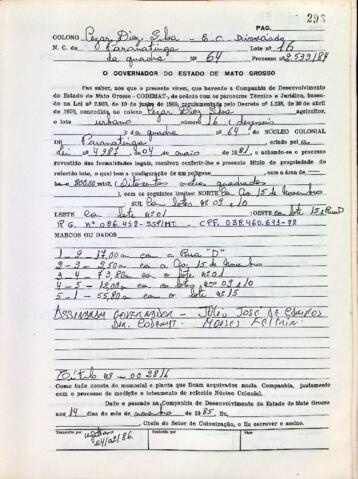 293
PAG.
COLONO Cezar Dias Silva - E.C. Divorciado
N. C. de Paranatinga Lote nº 16
da quadra Nº 64 Processo nº 2.539/84
O GOVERNADOR DO ESTADO DE MATO GROSSO
Faz saber, aos que o presente virem, que havendo a Companhia de Desenvolvimento
do Estado de Mato Grosso - CODEMAT, de acôrdo com os pareceres Técnico e Jurídico, basea-
da na Lei nº 2.933, de 10 de junho de 1969, regulamentado pelo Decreto nº 1.138, de 30 de abril
de 1970, concedido ao colono Cezar Dias Silva agricultor,
o lote urbano nº 16 (dezesseis
) da quadra nº 64 do NÚCLEO COLONIAL
DE Paranatinga criado pela
Lei nº 4.387, 04 de maio de 1981, e achando-se o processo
revestido das formalidades legais, resolveu conferir-lhe o presente título de propriedade do
referido lote, o qual tem a configuração de um polígono com a área de
800,00 m² (Oitocentos metros quadrados
), com os seguintes limites: NORTE Av. 15 de Novembro
SUL Com lotes nº 09 e 10
LESTE com lote nº 01 ; OESTE com lote 15 e Rua D
R.G. nº 026.432-SSP/MT. CPF. 038.460.641-72
MARCOS OU DADOS
1 - 2 - 17,00m com a Rua "D"
2 - 3 - 2,50m com a Av. 15 de Novembro
3 - 4 - 72,80m com o lote nº 01
4 - 5 - 12,00m com os lotes nº 09 e 10
5 - 1 - 55,80m com o lote nº 15
ASSINADA GOVERNADOR - JÚLIO JOSÉ DE CAMPOS
DIR. CODEMAT. MOISES FELTRIN
Título nº - 002816
Como tudo consta do memorial e planta que ficam arquivados nesta Companhia, juntamente
com o processo de medição e loteamento do referido Núcleo Colonial.
Dado e passado na Companhia de Desenvolvimento do Estado de Mato Grosso
aos 14 dias do mês de novembro de 1985, Eu,
, Chefe do Setor de Colonização, o fiz escrever e assino.
Transcrito por
24/02/86.
Conferido por